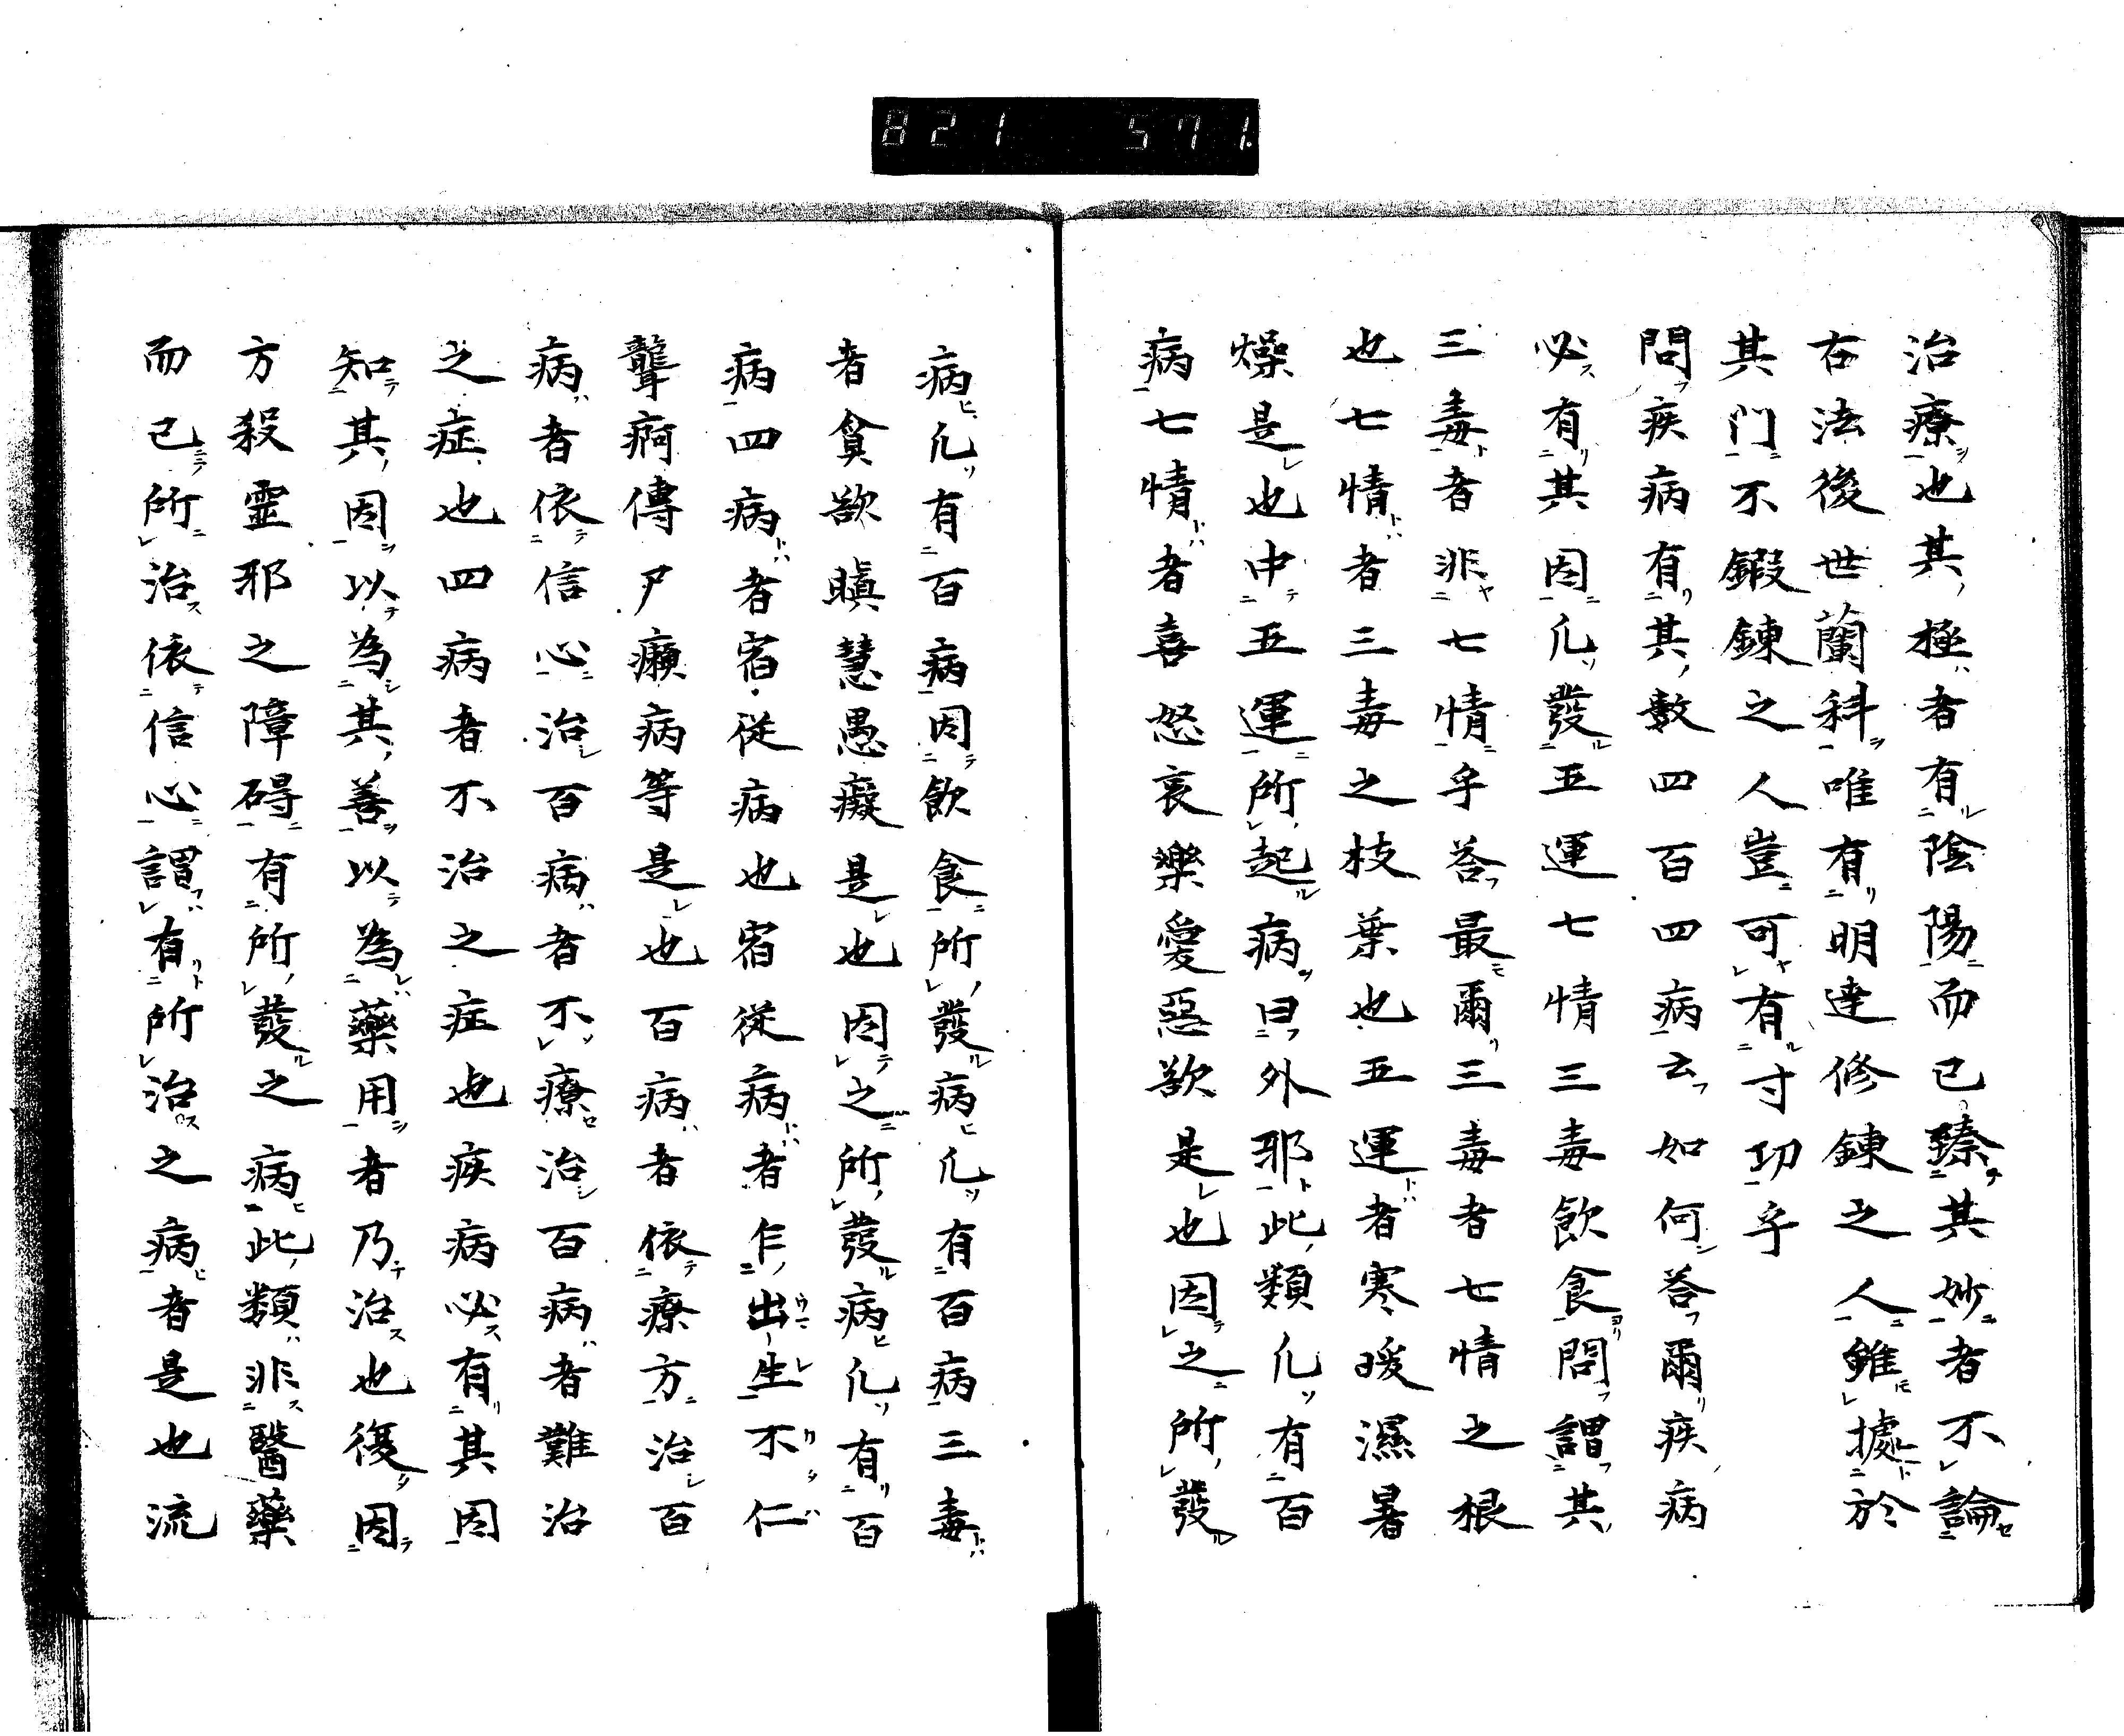 821 571.
治療也其極者有陰陽而已臻其妙者不論
古法後世蘭科唯有明達修錬之人雖據於
其门不鍜錬之人豈可有寸功乎
問疾病有其數四百四病云如何荅爾疾病
必有其因凢發五運七情三毒飲食問謂其
三毒者非七情乎荅最爾三毒者七情之根
也七情者三毒之枝葉也五運者寒暖濕暑
燥是也中五運所起病曰外邪此類凢有百
病七情者喜怒哀樂愛惡欲是也因之所發
病凢有百病因飲食所發病凢有百病三毒
者貪欲瞋慧愚癡是也因之所發病凢有百
病四病者宿從病也宿從病者乍出生不仁
聾痾傳尸癩病等是也百病者依療方治百
病者依信心治百病者不療治百病者難治
之症也四病者不治之症也疾病必有其因
知其因以為其善以為藥用者乃治也復因
方殺霊邪之障碍有所發之病此類非醫藥
而已所治依信心謂有所治之病者是也流